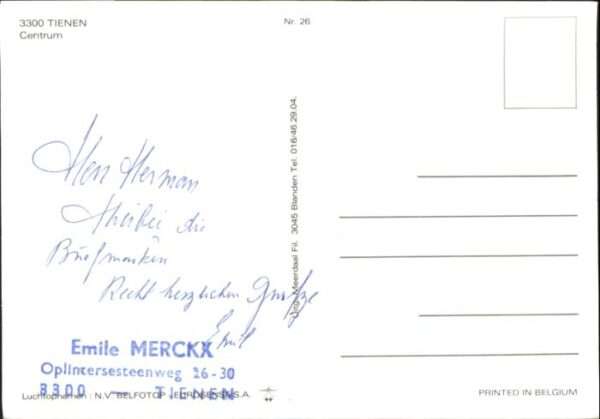 3300 TIENEN
Centrum
Nr. 26
Herman
die
Briefmarken
Recht herzlichen Grüsse
Emil
Emile MERCKX
Oplintersesteenweg 26-30
3300 — TIENEN
Luchtopnamen : N.V. BELFOTOP - EUROSENSE S.A.
Uitg. Meerdaal Fil. 3045 Blanden Tel. 016/46.29.04.
PRINTED IN BELGIUM